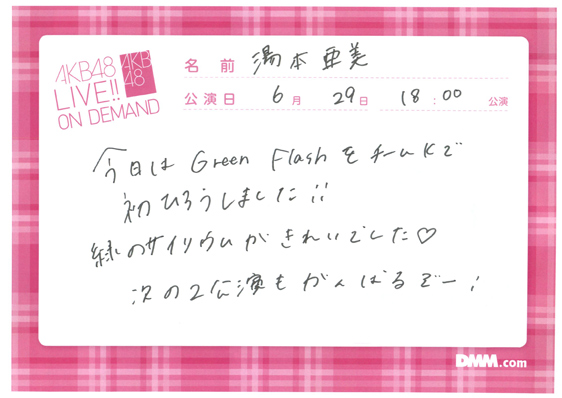 AKB48
LIVE!!
ON DEMAND
AKB
48
名前 湯本亜美
公演日 6月 29日 18:00 公演
今日は Green FlashをチームKで
初ひろうしました!!
緑のサイリウムがきれいでした♡
次の2公演もがんばるぞー!
DMM.com